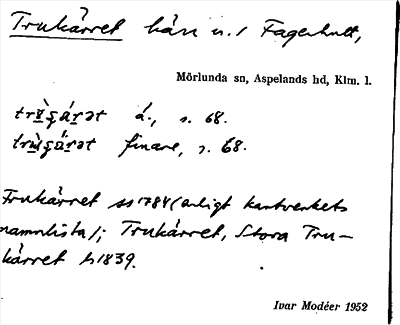 Trukärret kärr n. / Fagerhult,
Mörlunda sn, Aspelands hd, Klm. l.
á., s. 68.
finare, s. 68.
Trukärret ss 1784 (enligt kartverkets
namnlista); Trukärret, Stora Tru-
kärret h 1839.
Ivar Modéer 1952